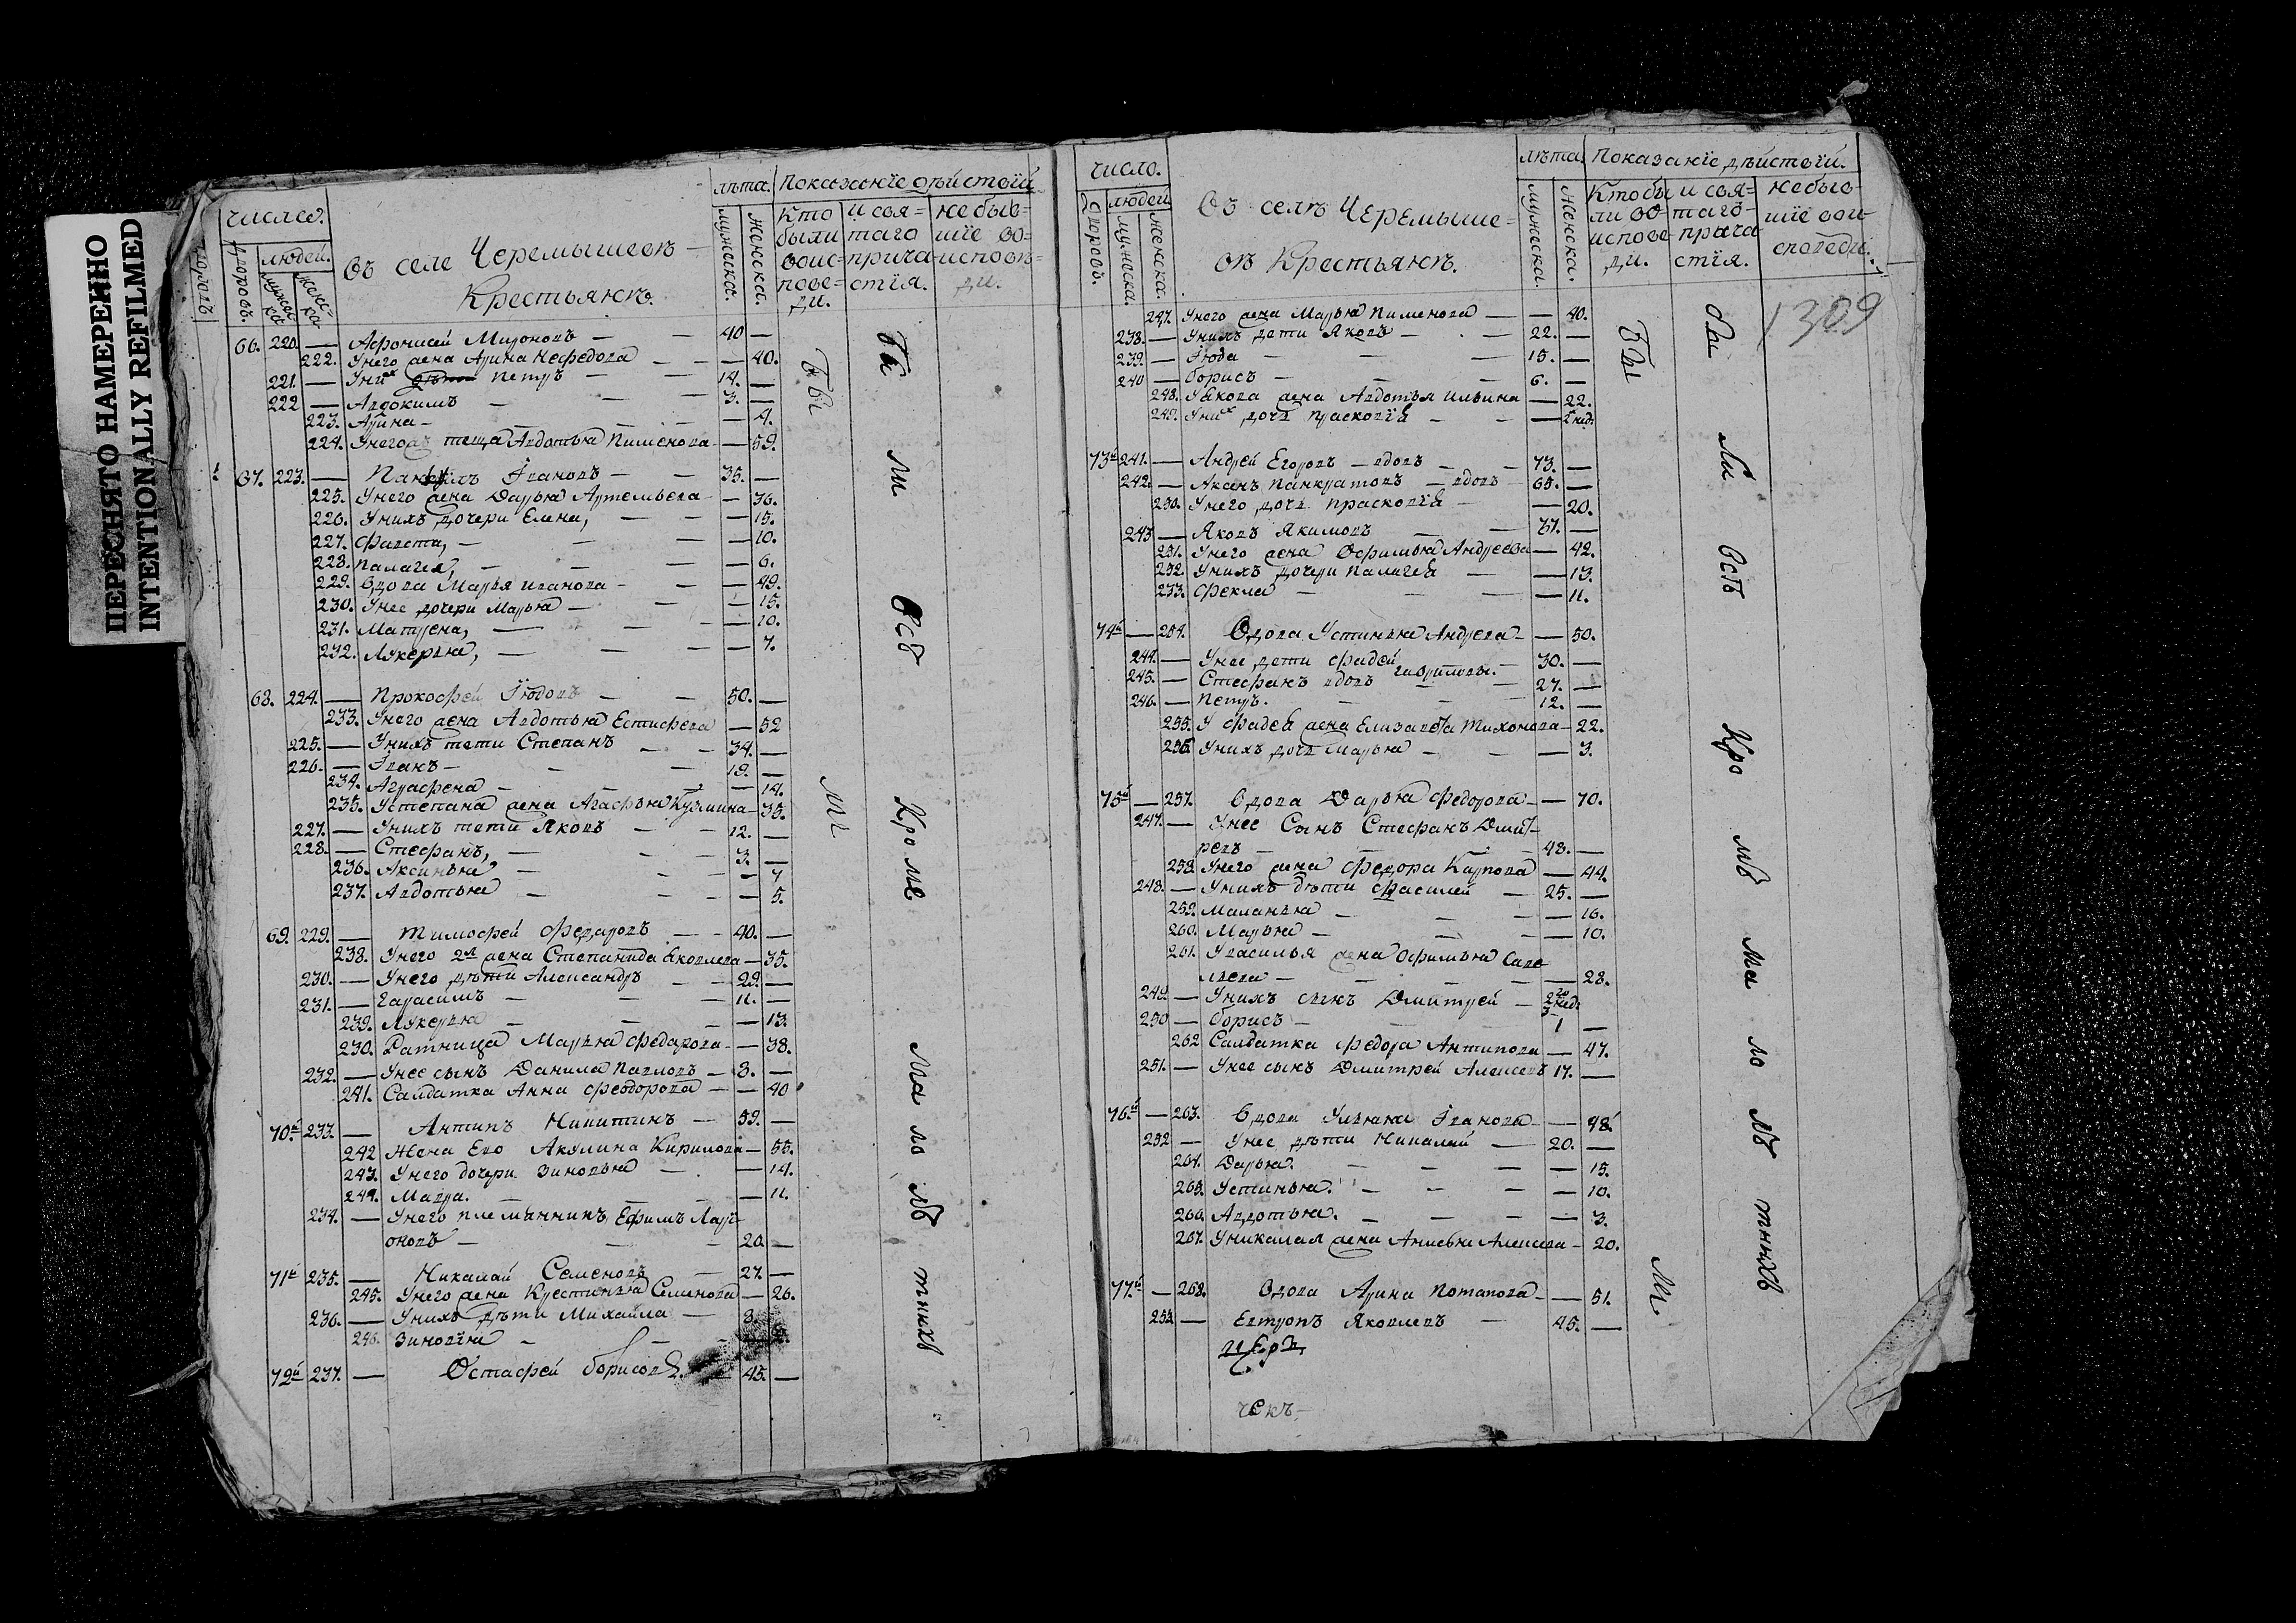 ПЕРЕСНЯТО НАМЕРЕННО
INTENTIONALLY REFILMED
число.
дворовъ.
людей.
мужеска
женска
въ селе Черемышевѣ
Крестьянѣ.
лѣта.
мужеска.
женска.
Показание дѣйствiй
Кто были воисповеди.
и святаго причастiя.
не бывшiе воисповѣди.
66. 220. — Афонисей Мироновъ — 40 —
222. Унего жена Арина Нефедова — — 40.
221. — Унихъ Петръ — 14. —
222 — Авдокимъ — 3. —
223. Арина — — 4.
224. Унего теща Авдотья Пименова — — 59.
67. 223. — Ивановъ — 35. —
225. Унего жена Дарья Артемьева — — 36.
226. Унихъ дочери Елена, — — 15.
227. — — 10.
228. Палагея, — — 6.
229. Вдова Марья Иванова — — 49.
230. Унее дочери Марья — — 15.
231. Матрена, — — 10.
232. Лукерья, — — 7.
68. 224. — Прокофей — 50. —
233. Унего жена Авдотья Естифеева — 52
225. — Унихъ тети Степанъ — 34. —
226. — Iванъ — 19. —
234. Аграфена — — 14.
235. Устепана жена Агафья Кузмина — 35.
227. — Унихъ тети Яковъ — 12. —
228. — Стефанъ, — 3. —
236. Аксинья — — 7
237. Авдотья — — 5.
69. 229. — Тимофей Федаровъ — 40. —
238. Унего 2я жена Степанида Яковлева — 35.
230. — Унего дѣти Александръ — 29. —
231. — Гарасимъ — 11. —
239. Лукерья — — 13.
230. Ратница Марья Федарова — — 38.
232. — Унее сынъ Данила Павловъ — 3. —
241. Салдатка Анна Феодорова — — 40
70й 233. — Антипъ Никитинъ — 59. —
242 Жена Его Акулина Кирилова — 55.
243. Унего дочери Зиновья — — 14.
244. Мавра. — — 11.
234. — Унего племянникъ Ефимъ Лар
оновъ — 20. —
71й 235. — Никалай Семеновъ — 27. —
245. Унего жена Крестинья Семенова — 26.
236. — Унихъ дѣти Михайла — 3.
246. Зиновiя —
72й 237. — Остафей Борисовъ. 45. —
Бы
ли
Всѣ
Кроме
ма
ло
лѣ
тнихъ
число.
дворовъ.
людей
мужеска.
женска.
Въ селѣ Черемыше=
вѣ Крестьянѣ.
лѣта
мужеска.
женска.
Показанiе дѣйствiй.
Кто были воисповеди.
и святаго причастiя.
не бывшiе воисповеди.
1309
247. Унего жена Марья Пименова — — 40.
238. — Унихъ дети Яковъ — 22. —
239. — — 15. —
240 — Борисъ — 6. —
248. Уякова жена Авдотья Ильина — 22.
249. Унихъ дочь Прасковiя —
73й 241. — Андрей Егоровъ — вдовъ — 73. —
242. — Аксенъ Панкратовъ — вдовъ — 65. —
250. Унего дочь Прасковiя — — 20.
243 — Яковъ Якимовъ — 37. —
251. Унего жена Офимья Андреева — 42.
252. Унихъ дочери Палагея — — 13.
253. Фекла — — 11.
74й — 254. Вдова Устинья Андрева — — 50.
244. — Унее дети Фадей — 30. —
Гавриловы.
245. — Стефанъ вдовъ — 27. —
246. — Петръ. — 12. —
255. У Фадея жена Елизавета Тихонова — 22.
256 Унихъ дочь Марья — — 3.
75й — 257. Вдова Дарья Федорова — — 70.
247. — Унее Сынъ Стефанъ Дмит
ревъ — 48. —
258. Унего жена Федора Карпова — 44.
248. — Унихъ дѣти Василей — 25. —
259. Маланья — — 16.
260. Марья — — 10.
261. Увасилья жена Офимья Саве
льева — — 28.
249. — Унихъ сынъ Дмитрей —
250 — Борисъ — 1 —
262 Салдатка Федора Антипова — 47.
251. — Унее сынъ Дмитрей Алексевъ 17. —
76й — 263. Вдова Ульяна Iванова — — 48.
252 — Унее дѣти Никалай — 20. —
264. Дарья. — — 15.
265. Устинья. — — 10.
266. Авдотья. — — 3.
267. Уникалая жена Анисья Алексева — 20.
77й — 268. Вдова Арина Потапова — — 51.
253. — Евтропъ Яковлевъ — 45. —
Бы
ли
Всѣ
Кро
мѣ
ма
ло
лѣ
тнихъ